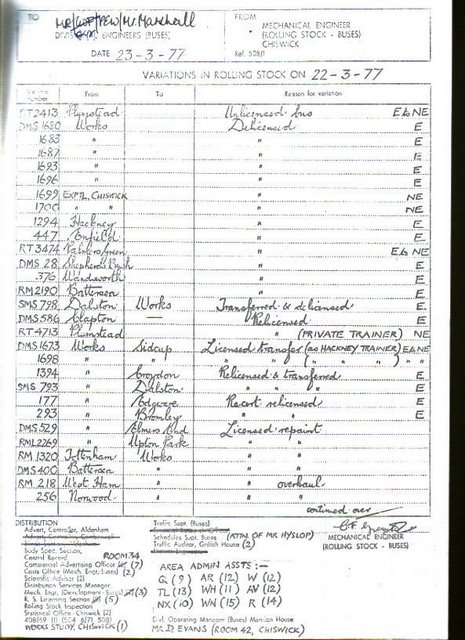 TO
Mr. Marshall
DIVISIONAL ENGINEERS (BUSES)
DATE 23-3-77
FROM
MECHANICAL ENGINEER
(ROLLING STOCK - BUSES)
CHISWICK
Ref. 508/1
VARIATIONS IN ROLLING STOCK ON 22-3-77
Vehicle number From To Reason for variation
RT2413 Plumstead Unlicensed bus E & NE
DMS 1680 Works Delicensed E
1683 " " E
1687 " " E
1693 " " E
1696 " " E
1699 EXPTL, CHISWICK " NE
1700 " " " NE
1294 Hackney " E
447 Enfield " E
RT 3474 Palmers Green " E & NE
DMS 28 Shepherd's Bush " E
376 Wandsworth " E
RM 2190 Battersea " E
SMS 798 Dalston Works Transferred & delicensed E
DMS 586 Clapton — Relicensed E
RT 4713 Plumstead " (PRIVATE TRAINER) NE
DMS 1673 Works Sidcup Licensed transfer (as HACKNEY TRAINER) E & NE
1698 " " " " ( " " ) "
1394 " Croydon Relicensed & transferred E
SMS 793 " Dalston " " E
177 " Edgware Recert relicensed E
293 " Bromley " " E
DMS 529 " Elmers End Licensed repaint
RML 2269 " Upton Park " "
RM 1320 Tottenham Works " "
DMS 400 Battersea " " "
RM 218 West Ham " " overhaul
256 Norwood " " "
continued over
MECHANICAL ENGINEER
(ROLLING STOCK - BUSES)
DISTRIBUTION
Advert, Controller, Aldenham
Body Spec. Section,
Central Record ROOM 34
Commercial Advertising Officer (7)
Costs Office (Mech. Engr. Buses) (2)
Scientific Adviser (2)
Distribution Services Manager
Mech. Engr. (Development - Buses) (3)
R. S. Licensing Section (5)
Rolling Stock Inspection
Statistical Office - Chiswick (2)
WORKS STUDY, CHISWICK (1)
Traffic Supt. (Buses)
Schedules Supt. Buses (ATTN. OF MR HYSLOP)
Traffic Auditor, Griffith House (2)
AREA ADMIN ASSTS :-
G (9) AR (12) W (12)
TL (13) WH (11) AV (12)
NX (10) WN (15) R (14)
Div. Operating Manager (Buses) Mansion House
MR D. EVANS (ROOM 42, CHISWICK)